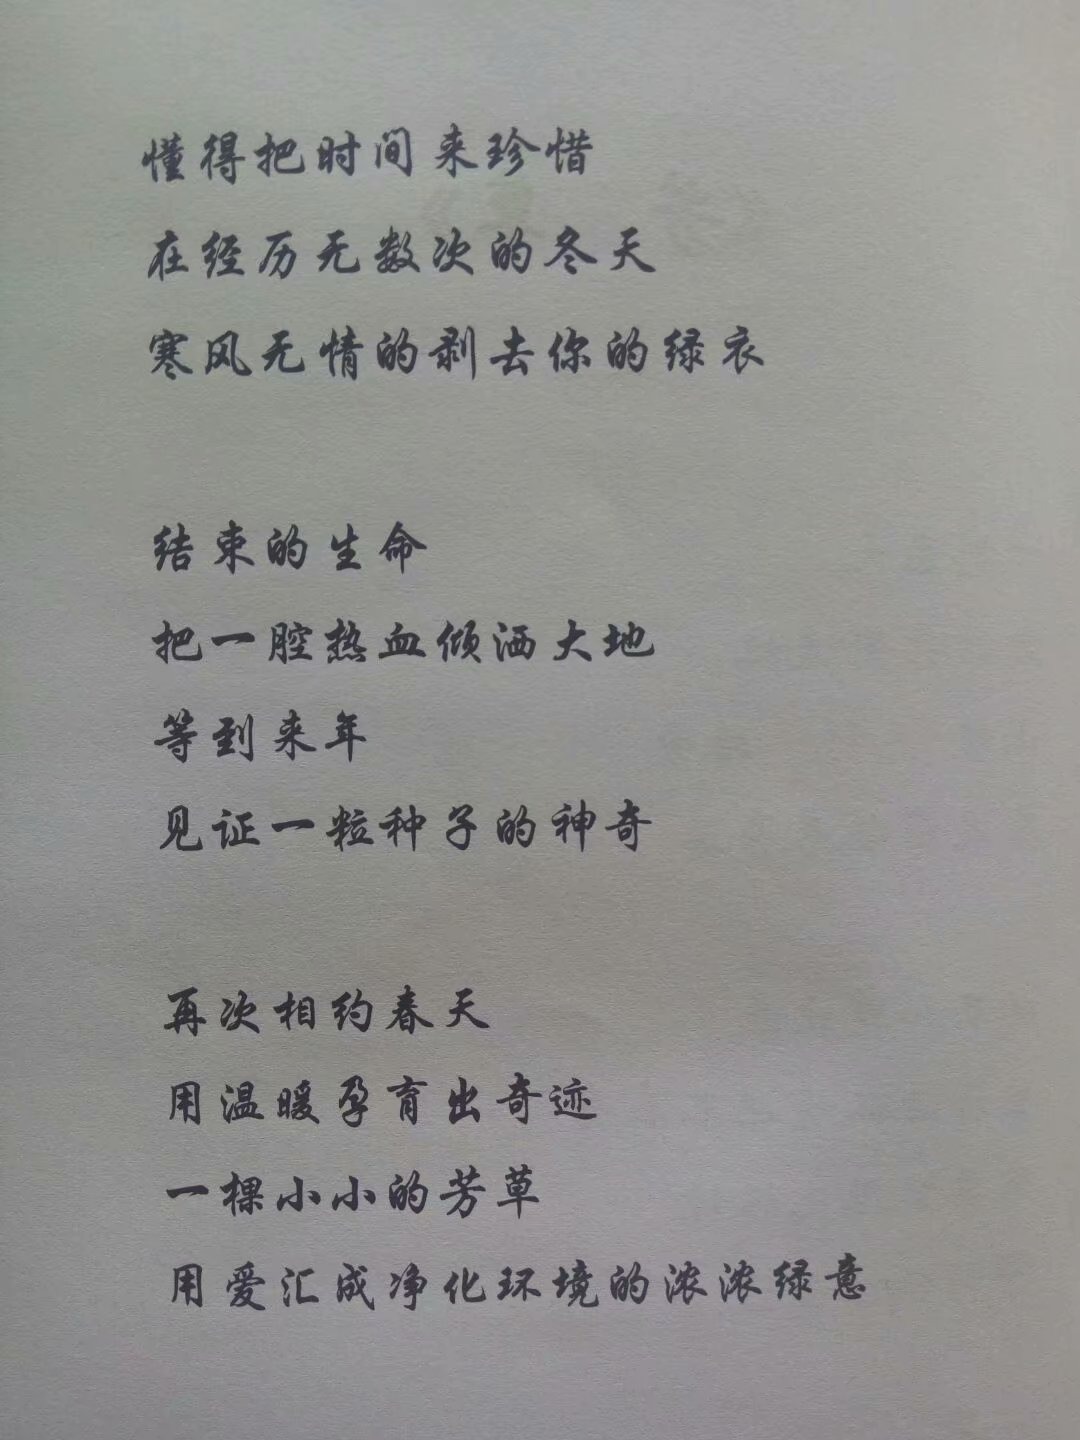 懂得把时间来珍惜
在经历无数次的冬天
寒风无情的剥去你的绿衣
结束的生命
把一腔热血倾洒大地
等到来年
见证一粒种子的神奇
再次相约春天
用温暖孕育出奇迹
一棵小小的芳草
用爱汇成净化环境的浓浓绿意